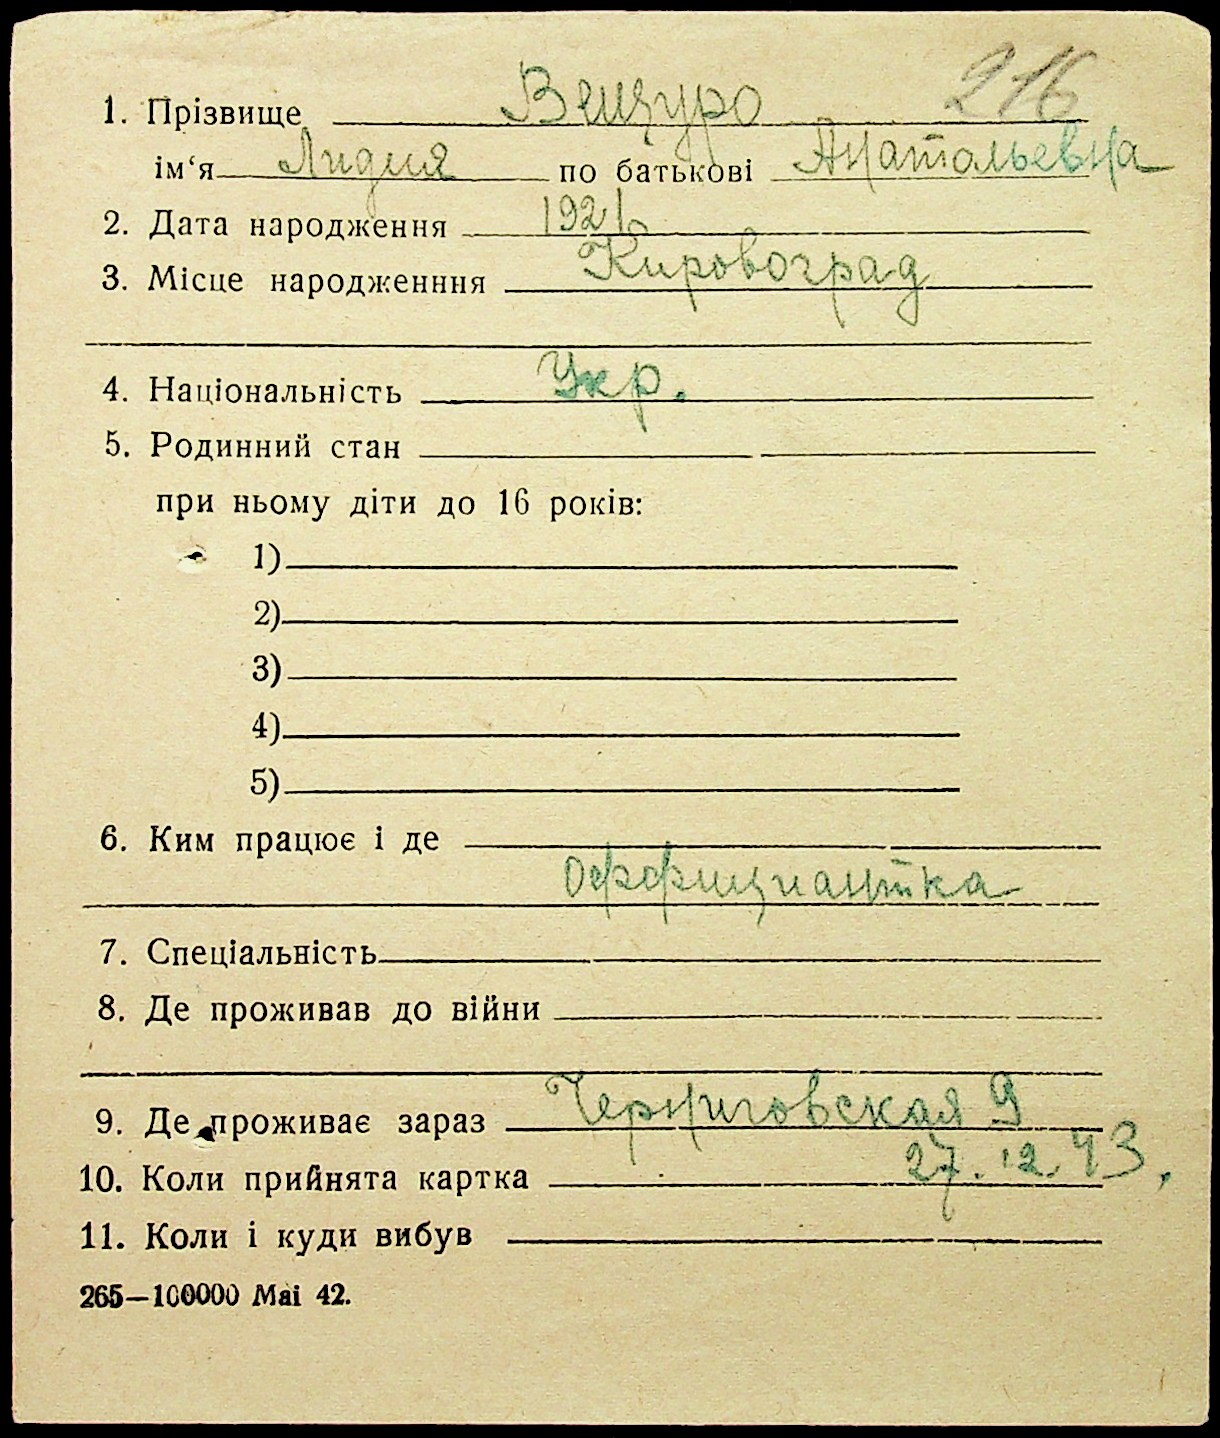 216
1. Прізвище Вещуро
ім‘я Лидия по батькові Анатольевна
2. Дата народження 1921
3. Місце народженння Кировоград
4. Національність Укр.
5. Родинний стан
при ньому діти до 16 років:
1)
2)
3)
4)
5)
6. Ким працює і де
оффициантка
7. Спеціальність
8. Де проживав до війни
9. Де проживає зараз Черниговская 9
10. Коли прийнята картка 27.12.43.
11. Коли і куди вибув
265—100000 Mai 42.